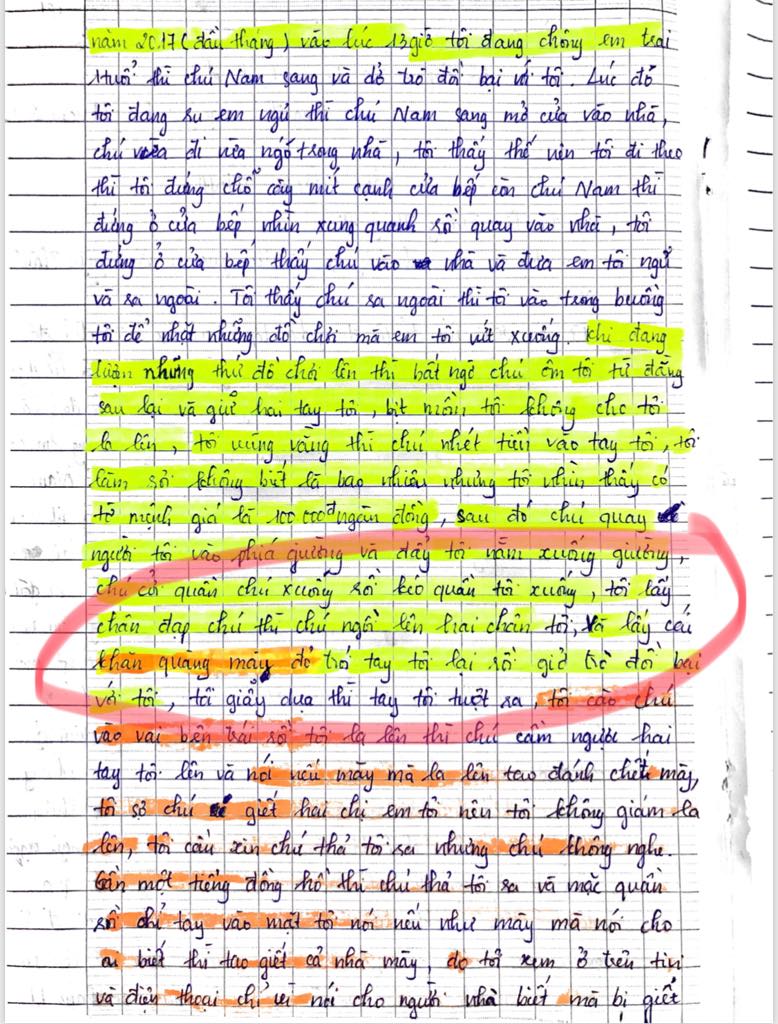 năm 2017 (đầu tháng) vào lúc 13 giờ tôi đang chông em trai
1 tuổi thì chú Nam sang và dở trò đồi bại với tôi. Lúc đó
tôi đang su em ngủ thì chú Nam sang mở cửa vào nhà,
chú vừa đi vừa ngó trong nhà, tôi thấy thế nên tôi đi theo
thì tôi đứng chỗ cây mít cạnh cửa bếp còn chú Nam thì
đứng ở cửa bếp nhìn xung quanh rồi quay vào nhà, tôi
đứng ở cửa bếp thấy chú vào nhà và đưa em tôi ngủ
và sa ngoài. Tôi thấy chú sa ngoài thì tôi vào trong buồng
tôi để nhặt những đồ chơi mà em tôi vứt xuống. khi đang
những thứ đồ chơi lên thì bất ngờ chú ôm tôi từ đằng
sau lại và giữ hai tay tôi, bịt mồm tôi không cho tôi
la lên, tôi vùng vằng thì chú nhét tiền vào tay tôi, tôi
lắm số không biết là bao nhiêu nhưng tôi nhìn thấy có
tờ mệnh giá là 100.000đ ngàn đồng, sau đó chú quay
người tôi vào phía giường và đẩy tôi nằm xuống giường,
chú cởi quần chú xuống rồi kéo quần tôi xuống, tôi lấy
chân đạp chú thì chú ngồi lên hai chân tôi, và lấy cái
khăn quàng màu đỏ trói tay tôi lại rồi giở trò đồi bại
với tôi, tôi giẫy dụa thì tay tôi tuột sa, tôi cào chú
vào vai bên trái rồi tôi la lên thì chú cầm người hai
tay tôi lên và nói nếu mày mà la lên tao đánh chết mày,
tôi sợ chú giết hai chị em tôi nên tôi không giám la
lên, tôi cầu xin chú thả tôi sa nhưng chú không nghe.
Gần một tiếng đồng hồ thì chú thả tôi sa và mặc quần
rồi chỉ tay vào mặt tôi nói nếu như mày mà nói cho
ai biết thì tao giết cả nhà mày, do tôi xem ở trên tivi
và điện thoại chỉ vì nói cho người nhà biết mà bị giết